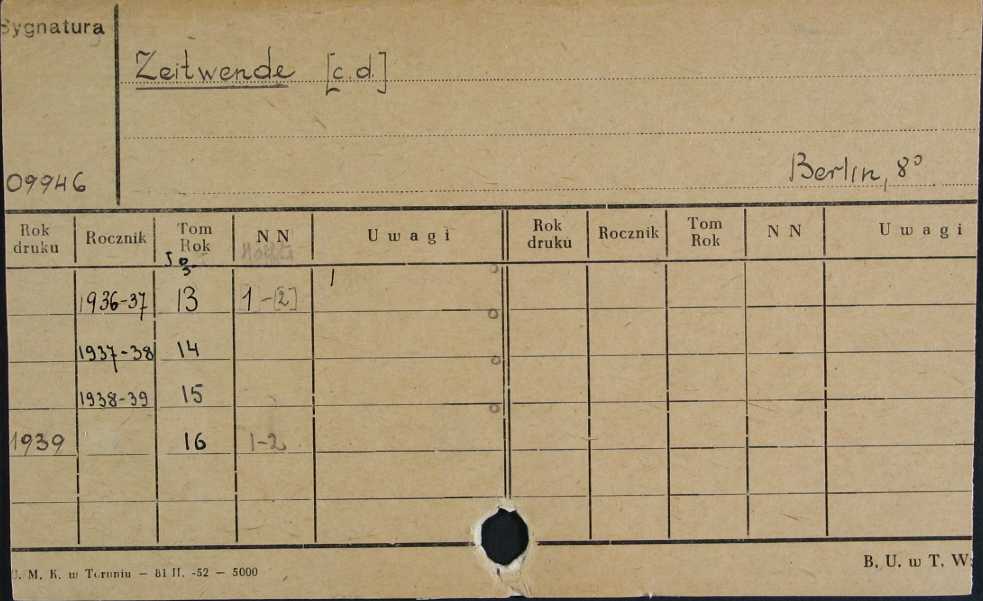 Sygnatura
Zeitwende [c.d.]
09946
Berlin, 8°
Rok druku Rocznik Tom Rok NN Uwagi Rok druku Rocznik Tom Rok NN Uwagi
1936-37 13 1-[2]
1937-38 14
1938-39 15
1939 16 1-2
U. M. K. w Toruniu — 81 II. -52 — 5000
B. U. w T. W: